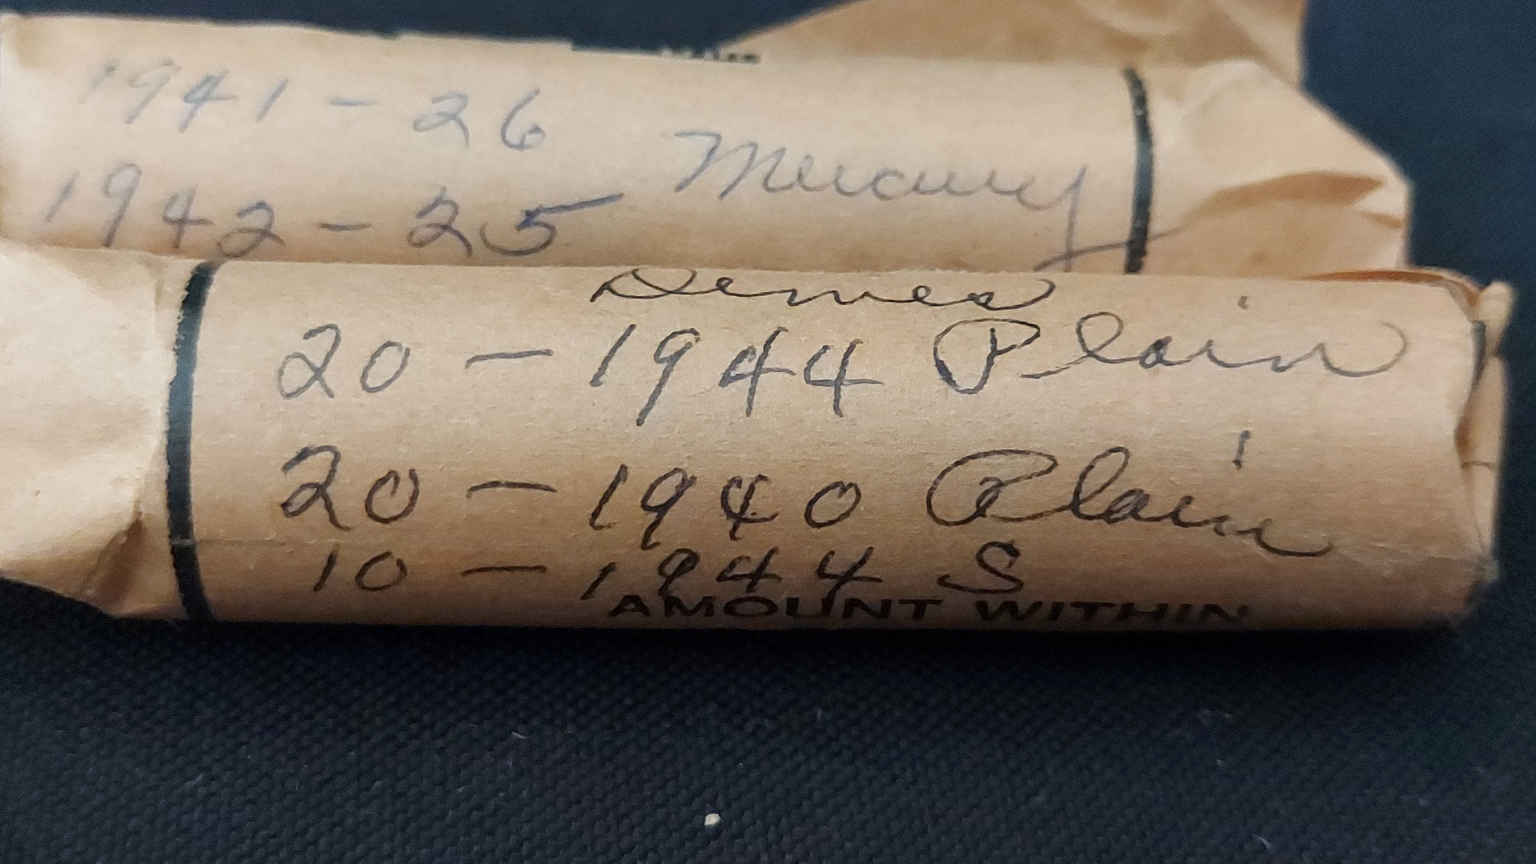 1941 - 26
Mercury
1942 - 25
Dimes
20 - 1944 Plain
20 - 1940 Plain
10 - 1944 S
AMOUNT WITHIN